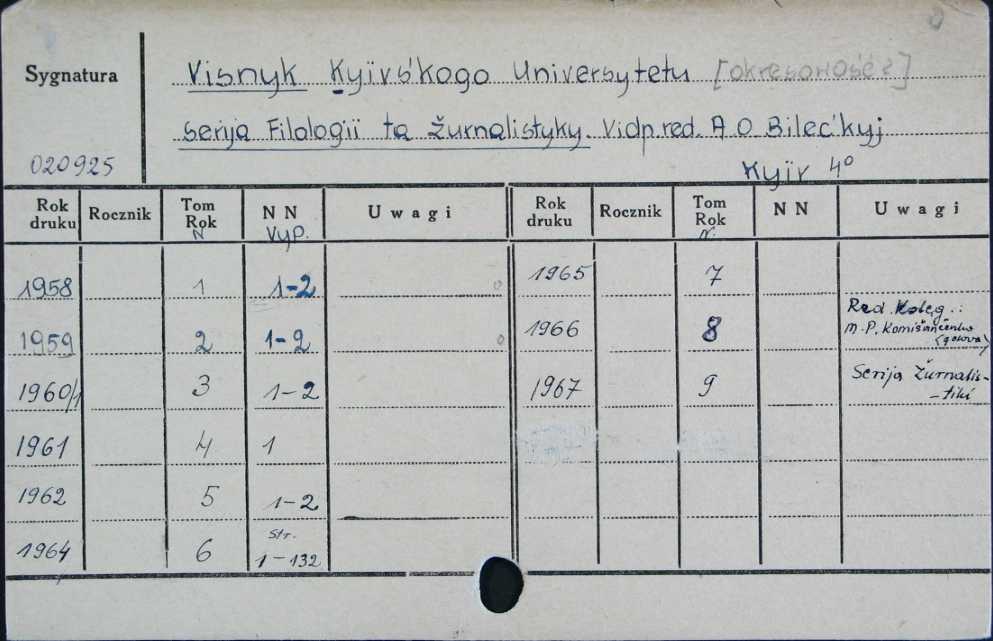 Sygnatura
Visnyk Kyïvs'kogo Universytetu [okresowość?]
serija Filologiï ta žurnalistyky. Vidp. red. A O Bilec'kyj
020925
Kyïv 4°
Rok druku Rocznik Tom Rok N NN Vyp. Uwagi Rok druku Rocznik Tom Rok N. NN Uwagi
1958 1 1-2
1959 2 1-2
1960/1 3 1-2
1961 4 1
1962 5 1-2
1964 6 Str. 1-132
1965 7
1966 8 Red. Koleg.: M.P. Komišančenko (golova)
1967 9 Serija Žurnalis-
-tiki